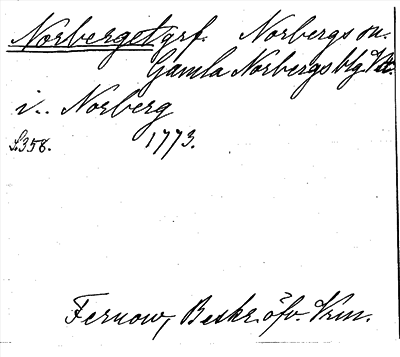 Norberget grf. Norbergs sn.
Gamla Norbergs blg Vstm.
i.. Norberg
S.358. 1773.
Fernow, Beskr. öfv. Vrm.